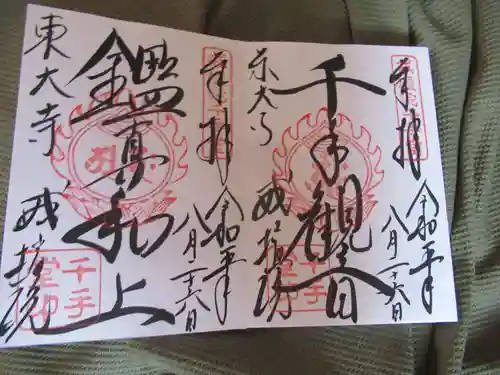 奉拝
令和五年
八月二十六日
千手観音
東大寺
戒壇院
千手
堂印
奉拝
令和五年
八月二十六日
鑑真和上
東大寺
戒壇院
千手
堂印